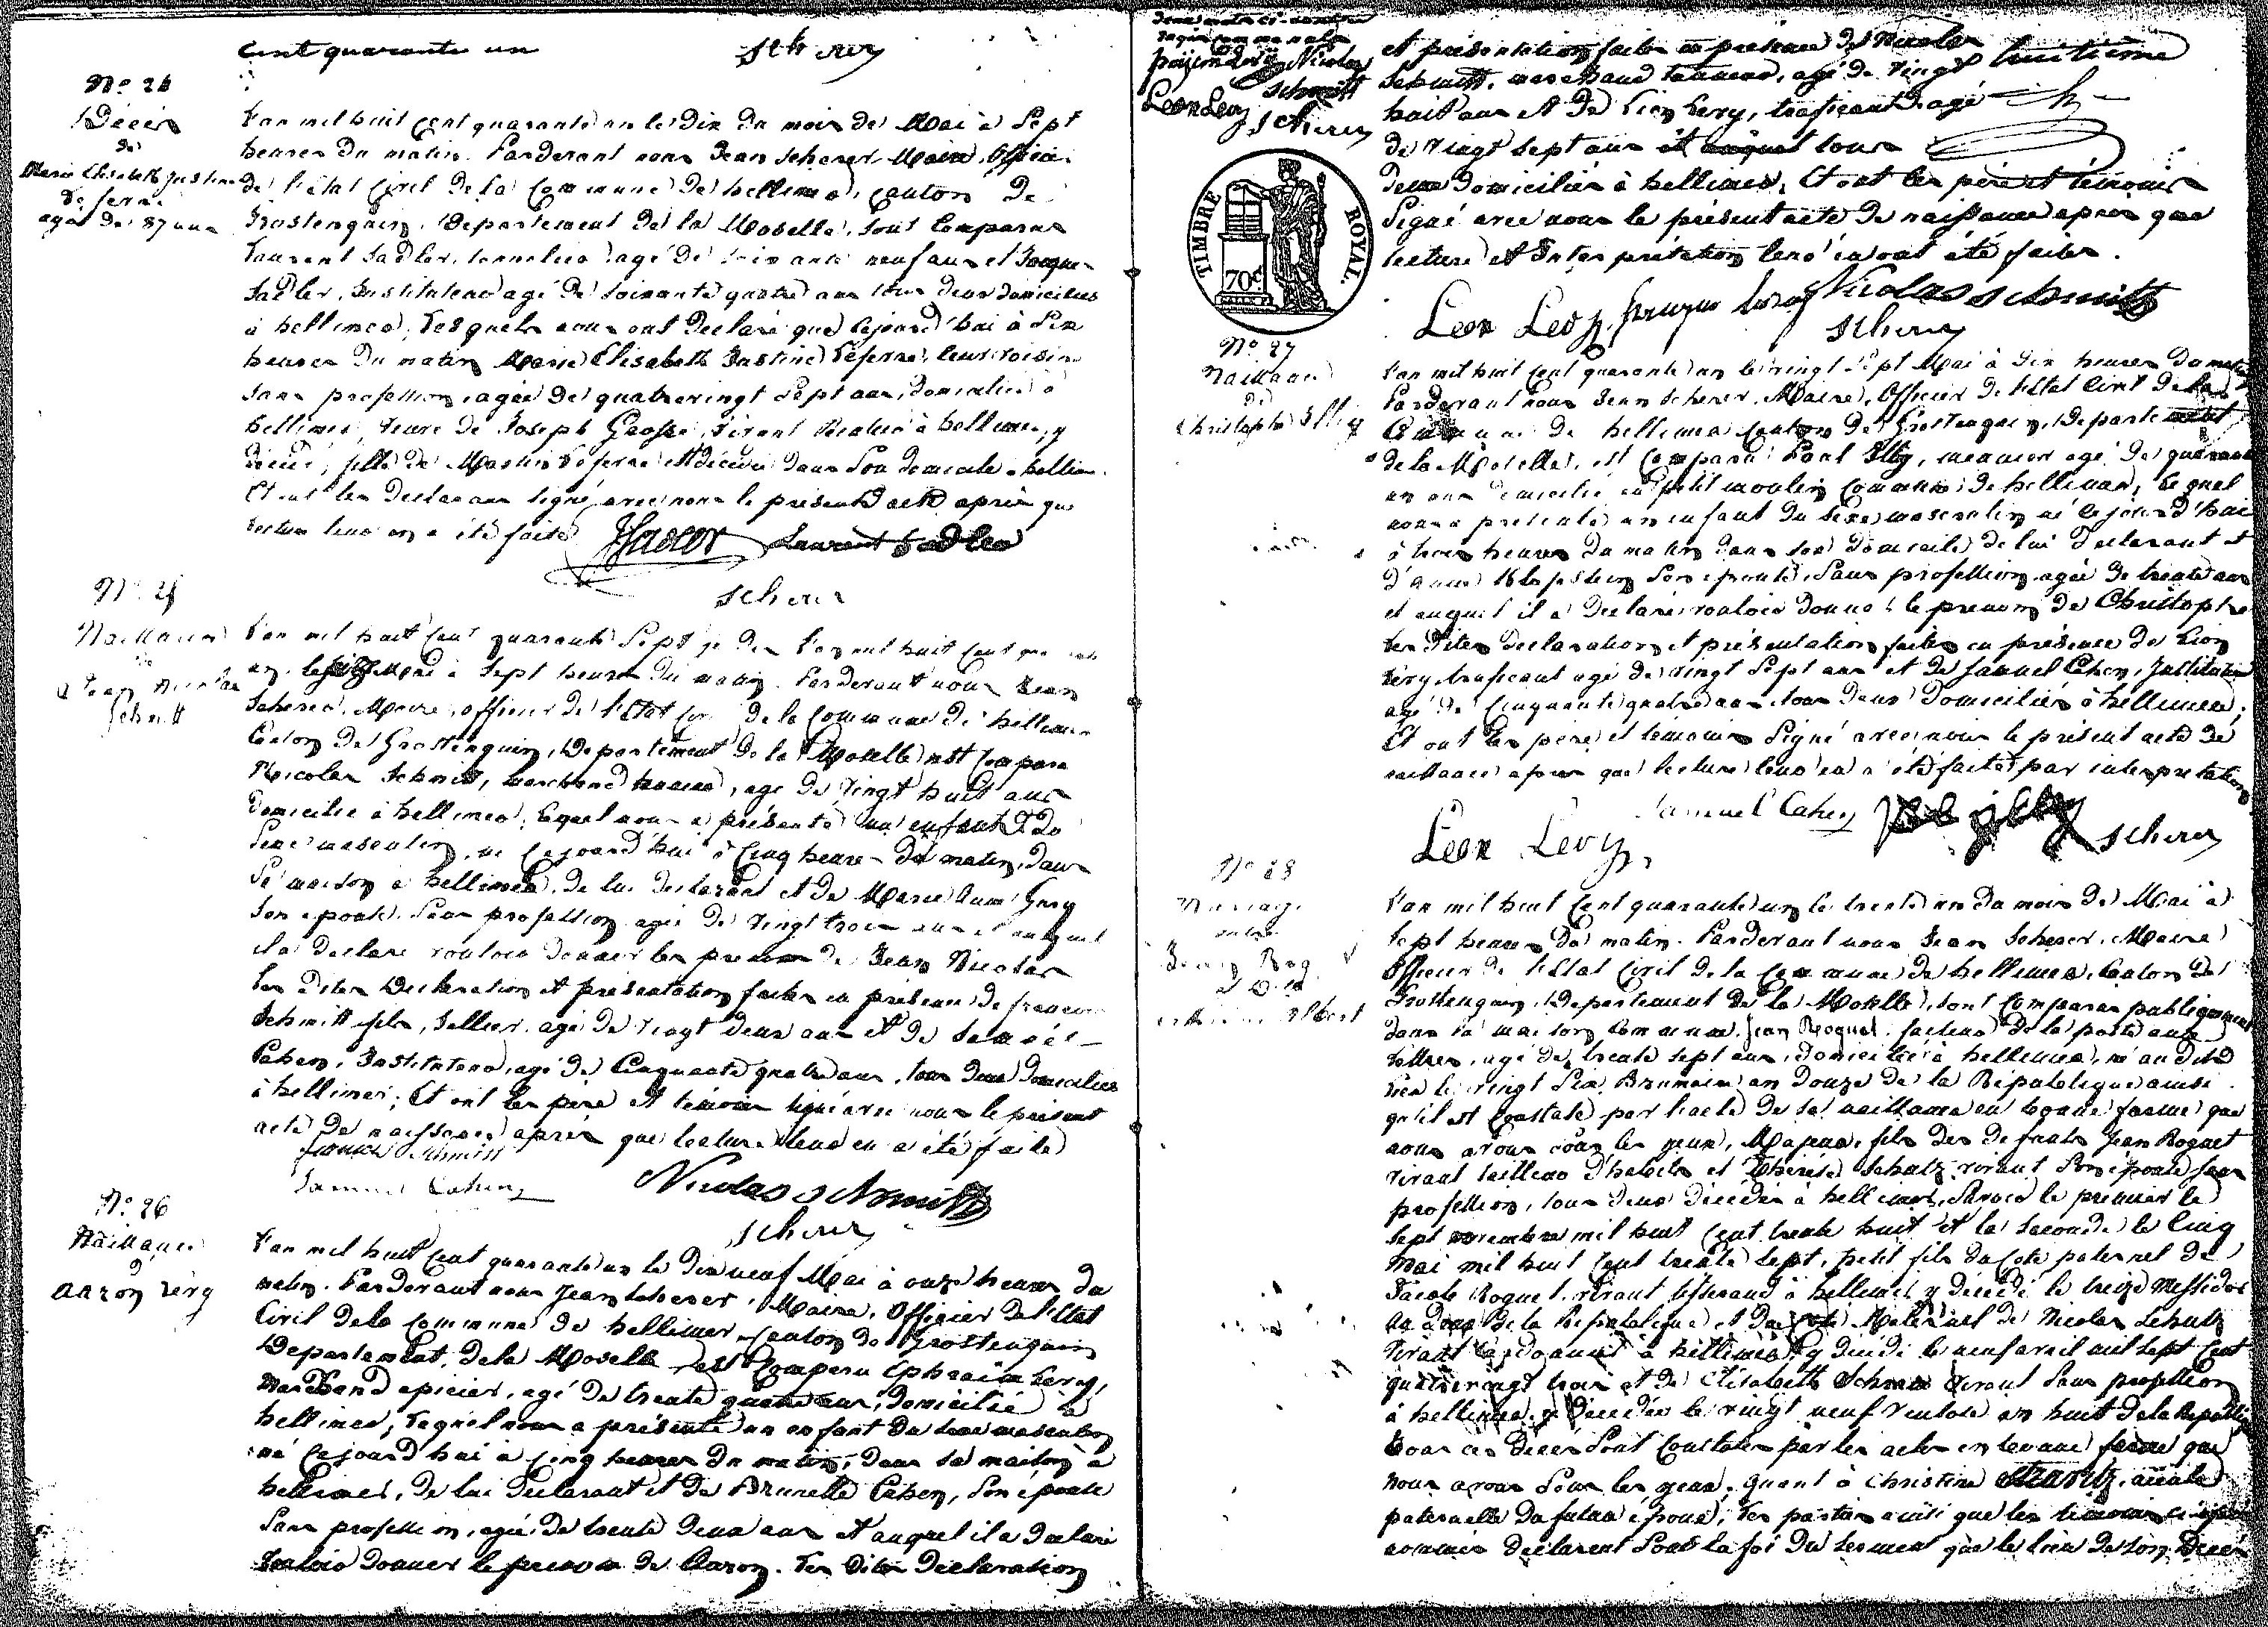 cent quarante un
Scherer
No 24
Décès
de
Marie Elisabeth Justine
agée de 87 ans
L'an mil huit cent quarante un le dix du mois de Mai à Sept
heures du matin. Pardevant nous Jean Scherer, Maire, Officier
de l'état Civil de la Commune de hellimer, canton de
Grostenquin, Département de la Moselle, sont Comparus
Laurent Sadler, agé de soixante neuf ans et Jacques
Sadler, Instituteur agé de soixante quatre ans tous deux domiciliés
à hellimer, Lesquels nous ont déclaré que cejourd'hui à Six
heures du matin Marie Elisabeth Justine Deferne, leur voisine
sans profession, agée de quatrevingt Sept ans, domiciliée à
hellimer, Veuve de Joseph Grosse, vivant à hellimer, y
décédé, fille de Martin Deferne est décédée dans Son domicile à hellimer
Et ont les déclarans signé avec nous le présent acte après que
lecture leur en a été faite
JSadler Laurent Sadler
Scherer
No 25
Naissance
de
Jean Nicolas
Schmitt
L'an mil huit Cent quarante Sept je dis L'an mil huit Cent quarante
un, le Mai à Sept heures du matin. Pardevant nous Jean
Scherer, Maire, officier de l'Etat Civil de la Commune de hellimer
Canton de Grostenquin, Département de la Moselle est Comparu
Nicolas Schmitt, marchand tanneur, agé de Vingt huit ans
domicilié à hellimer, Lequel nous a présenté un enfant du
Sexe masculin, né Cejourd'hui à Cinq heures du matin, dans
Sa maison à hellimer, de lui déclarant et de Marie Anne
Son épouse, Sans profession agée de Vingt trois ans et auquel
il a déclaré vouloir donner les prénoms de Jean Nicolas
Les dites Déclaration et présentation faites en présence de François
Schmitt fils, Sellier, agé de Vingt deux ans et de Samuel
Cahen, Instituteur, agé de Cinquante quatre ans, tous deux domiciliés
à hellimer; Et ont les père et témoins signé avec nous le présent
acte de naissance après que lecture leur en a été faite
François Schmitt
Samuel Cahen
Nicolas Schmitt
Scherer
No 26
Naissance
d
Aaron Lévy
L'an mil huit Cent quarante un le dix neuf Mai à onze heures du
matin. Pardevant nous Jean Scherer, Maire, Officier de l'Etat
Civil de la Commune de hellimer Canton de Grostenquin
Département de la Moselle est Comparu Ephraïm Levy,
Marchand épicier, agé de trente quatre ans, domicilié à
hellimer, Lequel nous a présenté un enfant du Sexe masculin
né Cejourd'hui à Cinq heures du matin, dans sa maison à
hellimer, de lui déclarant et de Brunette Cahen, Son épouse
Sans profession, agée de trente deux ans et auquel il a déclaré
Vouloir donner le prénom de Aaron. Les dites Déclaration
Nicolas
Schmitt
Leon Levy
Scherer
et présentation faites en présence de Nicolas
Schmitt, marchand tanneur, agé de Vingt huitième
huit ans et de Lion Levy, traficant agé
de Vingt Sept ans tous
deux domiciliés à hellimer, Et ont les père et témoins
Signé avec nous le présent acte de naissance après que
lecture et Interprétation leur en ont été faites.
TIMBRE ROYAL.
70c
Leon Levy Nicolas Schmitt
Scherer
No 27
Naissance
de
Christophe Illig
L'an mil huit Cent quarante un le vingt Sept Mai à dix heures du matin
Pardevant nous Jean Scherer, Maire, Officier de l'Etat Civil de la
Commune de hellimer Canton de Grostenquin, Département
de la Moselle, est Comparu Paul Illig, meunier agé de quarante
un ans domicilié au petit moulin Commune de hellimer, Lequel
nous a présenté un enfant du Sexe masculin né Cejourd'hui
à trois heures du matin dans son domicile de lui déclarant et
d'Anne Son épouse, Sans profession, agée de trente ans
et auquel il a déclaré vouloir donner le prénom de Christophe
Les dites déclaration et présentation faites en présence de Lion
Lévy, traficant agé de vingt Sept ans et de Samuel Cahen, Instituteur
agé de Cinquante quatre ans, tous deux domiciliés à hellimer,
Et ont les père et témoins Signé avec nous le présent acte de
naissance après que lecture leur en a été faite par interprétation
Samuel Cahen
Leon Levy
Scherer
No 28
Mariage
entre
L'an mil huit Cent quarante un le trente un du mois de Mai à
Sept heures du matin. Pardevant nous Jean Scherer, Maire
Officier de l'Etat Civil de la Commune de hellimer, Canton de
Grostenquin, Département de la Moselle, sont Comparus publiquement
dans la maison Commune, Jean Roquel, facteur de la poste aux
lettres, agé de trente sept ans, domicilié à hellimer, né au dit
lieu le vingt Six Brumaire an douze de la République ainsi
qu'il est Constaté par l'acte de sa naissance en bonne forme que
nous avons sous les yeux, Majeur, fils des défunts Jean Roquel
vivant tailleur d'habits et Thérèse Schutz vivant Son épouse Sans
profession, tous deux décédés à hellimer, Savoir le premier le
Sept novembre mil huit Cent trente huit et la Seconde le Cinq
Mai mil huit Cent trente Sept, petit fils du Coté paternel de
Jacob Roquel vivant tisserand à hellimer y décédé le treize Messidor
an douze de la République et du Coté Maternel de Nicolas Schutz
vivant Cordonnier à hellimer, y décédé le neuf avril mil Sept Cent
quatrevingt trois et de Elisabeth vivant Sans profession
à hellimer, y décédée le vingt neuf Ventose an huit de la République
tous ces décès Sont Constatés par les actes en bonne forme que
nous avons Sous les yeux, quant à Christine aieule
paternelle du futur époux, Les parties ainsi que les témoins ci après
nommés déclarent Sous la foi du serment que le lieu de son décès